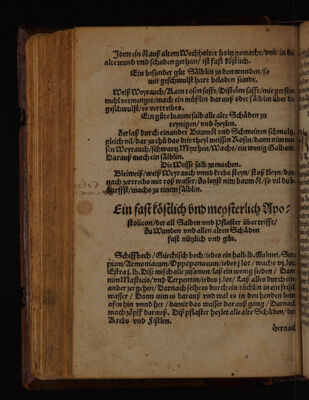 Item ein Rauß altem Wechholter holtz gemacht/ vnd in die
alte wund vnd schaden gethan/ ist fast köstlich.
Ein besunder gůt Sälblin zu den wunden/ so
mit geschwulst hart beladen seind.
Weiß Weyrauch/ Rosen safft/ Distelen safft/ mit gersten
mehl vermenget/ mach ein můßlin darauß oder sälblin über die
geschwulst/ es vertreibts.
Ein gůte braune salb alle alte Schäden zu
reynigen/ vnd heylen.
Zerlaß durch einander Baumöl vnd Schweinen schmaltz/
gleich vil/ dar zu thů das drit theyl weissen
sen Weyrach/ schwartz Myrrhen/ Wachs/ ein wenig Galban/
Darauß mach ein sälblin.
Die Weisse salb zu machen.
Bleiweiß/ weiß Weyrach vnnd krebs steyn/ stoß kleyn/ dar
nach zertreibs mit roß wasser/ Zu letzst nim baum öl/ so vil du
darffst/ machs zu einem sälblin.
Ein fast köstlich vnd meysterlich Apo-
stolicon/ der all Salben vnd Pflaster übertrifft/
Zu Wunden vnd allen alten Schäden
fast nützlich vnd gůt.
Schiffbech/ Griechisch bech/ jedes ein halb lb. Galmei,
pium/ Armoniacum/ Oppoponacum/ jedes j. lot/ wachs vj. lot.
j. lb. Diß misch alle zusamen/ laß ein wenig sieden/ Darn
nim Masticis/ vnd Terpentin/ jedes j. lot/ Laß alles durch ein
ander zergehen/ Darnach seihes durch ein tüchlin in ein frisch
wasser/ Dann nim es darauß vnd wal es in den henden hin
vnnd her/ damit das wasser darauß gang/ Darnach
mach zöpff darauß. Diß pflaster heylet alle alte Schäden, der
Krebs vnd Fistlen.
hernach